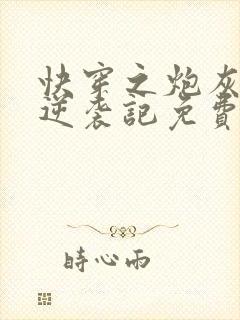 快穿之炮灰
逆袭記免費
時心雨